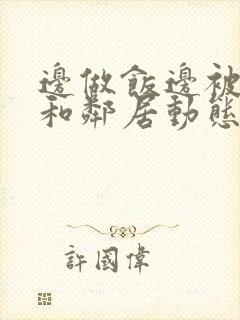 邊做飯邊被
和鄰居動態
許國偉